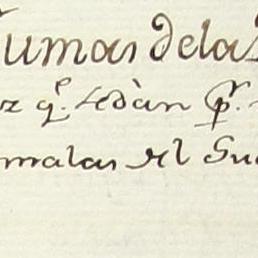 umas dela
z q.e sedàn p.r
malas del Su